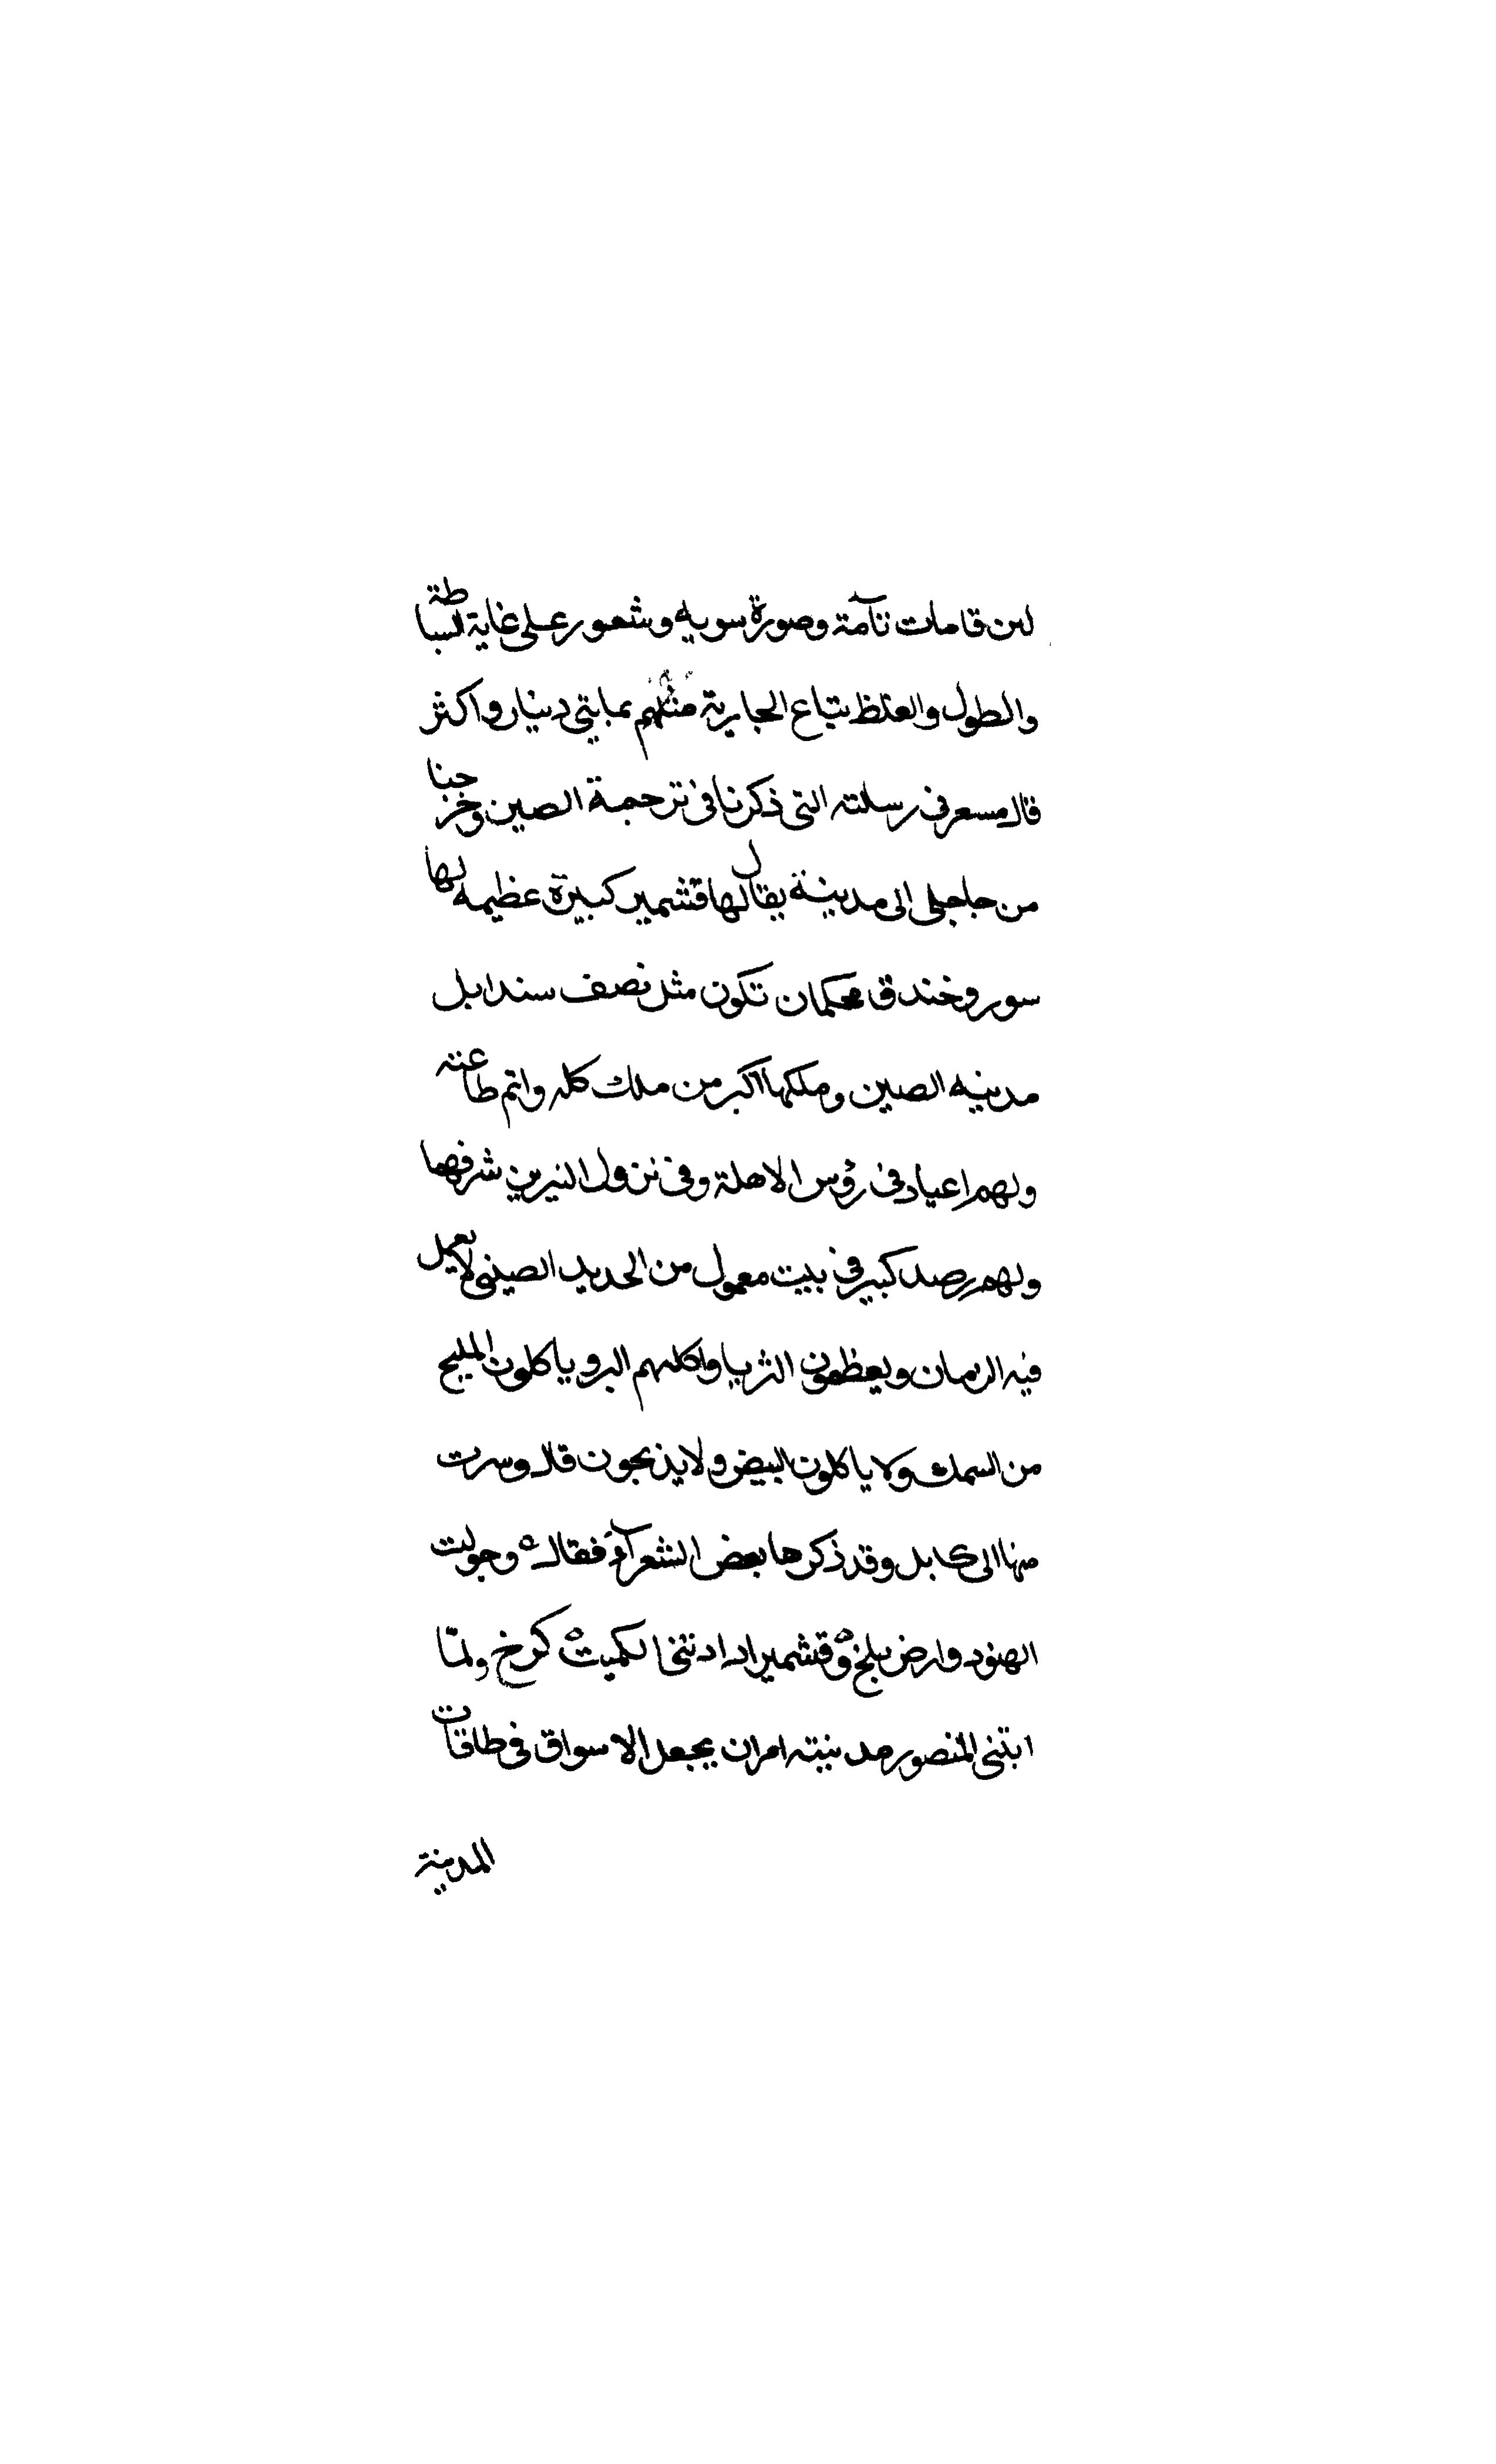 لهن قامات تآمة وصورة سويه وشعور على غاية السباطة
والطول والغلظ يتباع الجارية منهم بمايتي دينار واكثر
قال مسعر في رسلته التي ذكرنا في ترجمة الصين وخرجنا
من جاجلى الى مدينة يقال لها قشمير كبيرة عظيمه لها
سور وخندق محكمان تكون مثل نصف سندابل
مدينه الصين وملكها اكبر من ملك كله واتم طاعته
ولهم اعياد في رؤس الاهلة وفي نزول النيرين شرفهما
ولهم رصد كبير في بيت معمول من الحديد الصيني لا يعمل
فيه الزمان ويعظمون الثريا واكلهم البر وياكلون المليح
من السمك ولا ياكلون البيض ولا يذبحون قال وسرت
منها الى كابل وقد ذكرها بعض الشعرآء فقال ه وجولت
الهنود وارض بلخ ه وقشمير ادادتنى الكميت ه كرخ ولما
ابتنى المنصور مدينته امر ان يجعل الاسواق في طاقات
المدينة